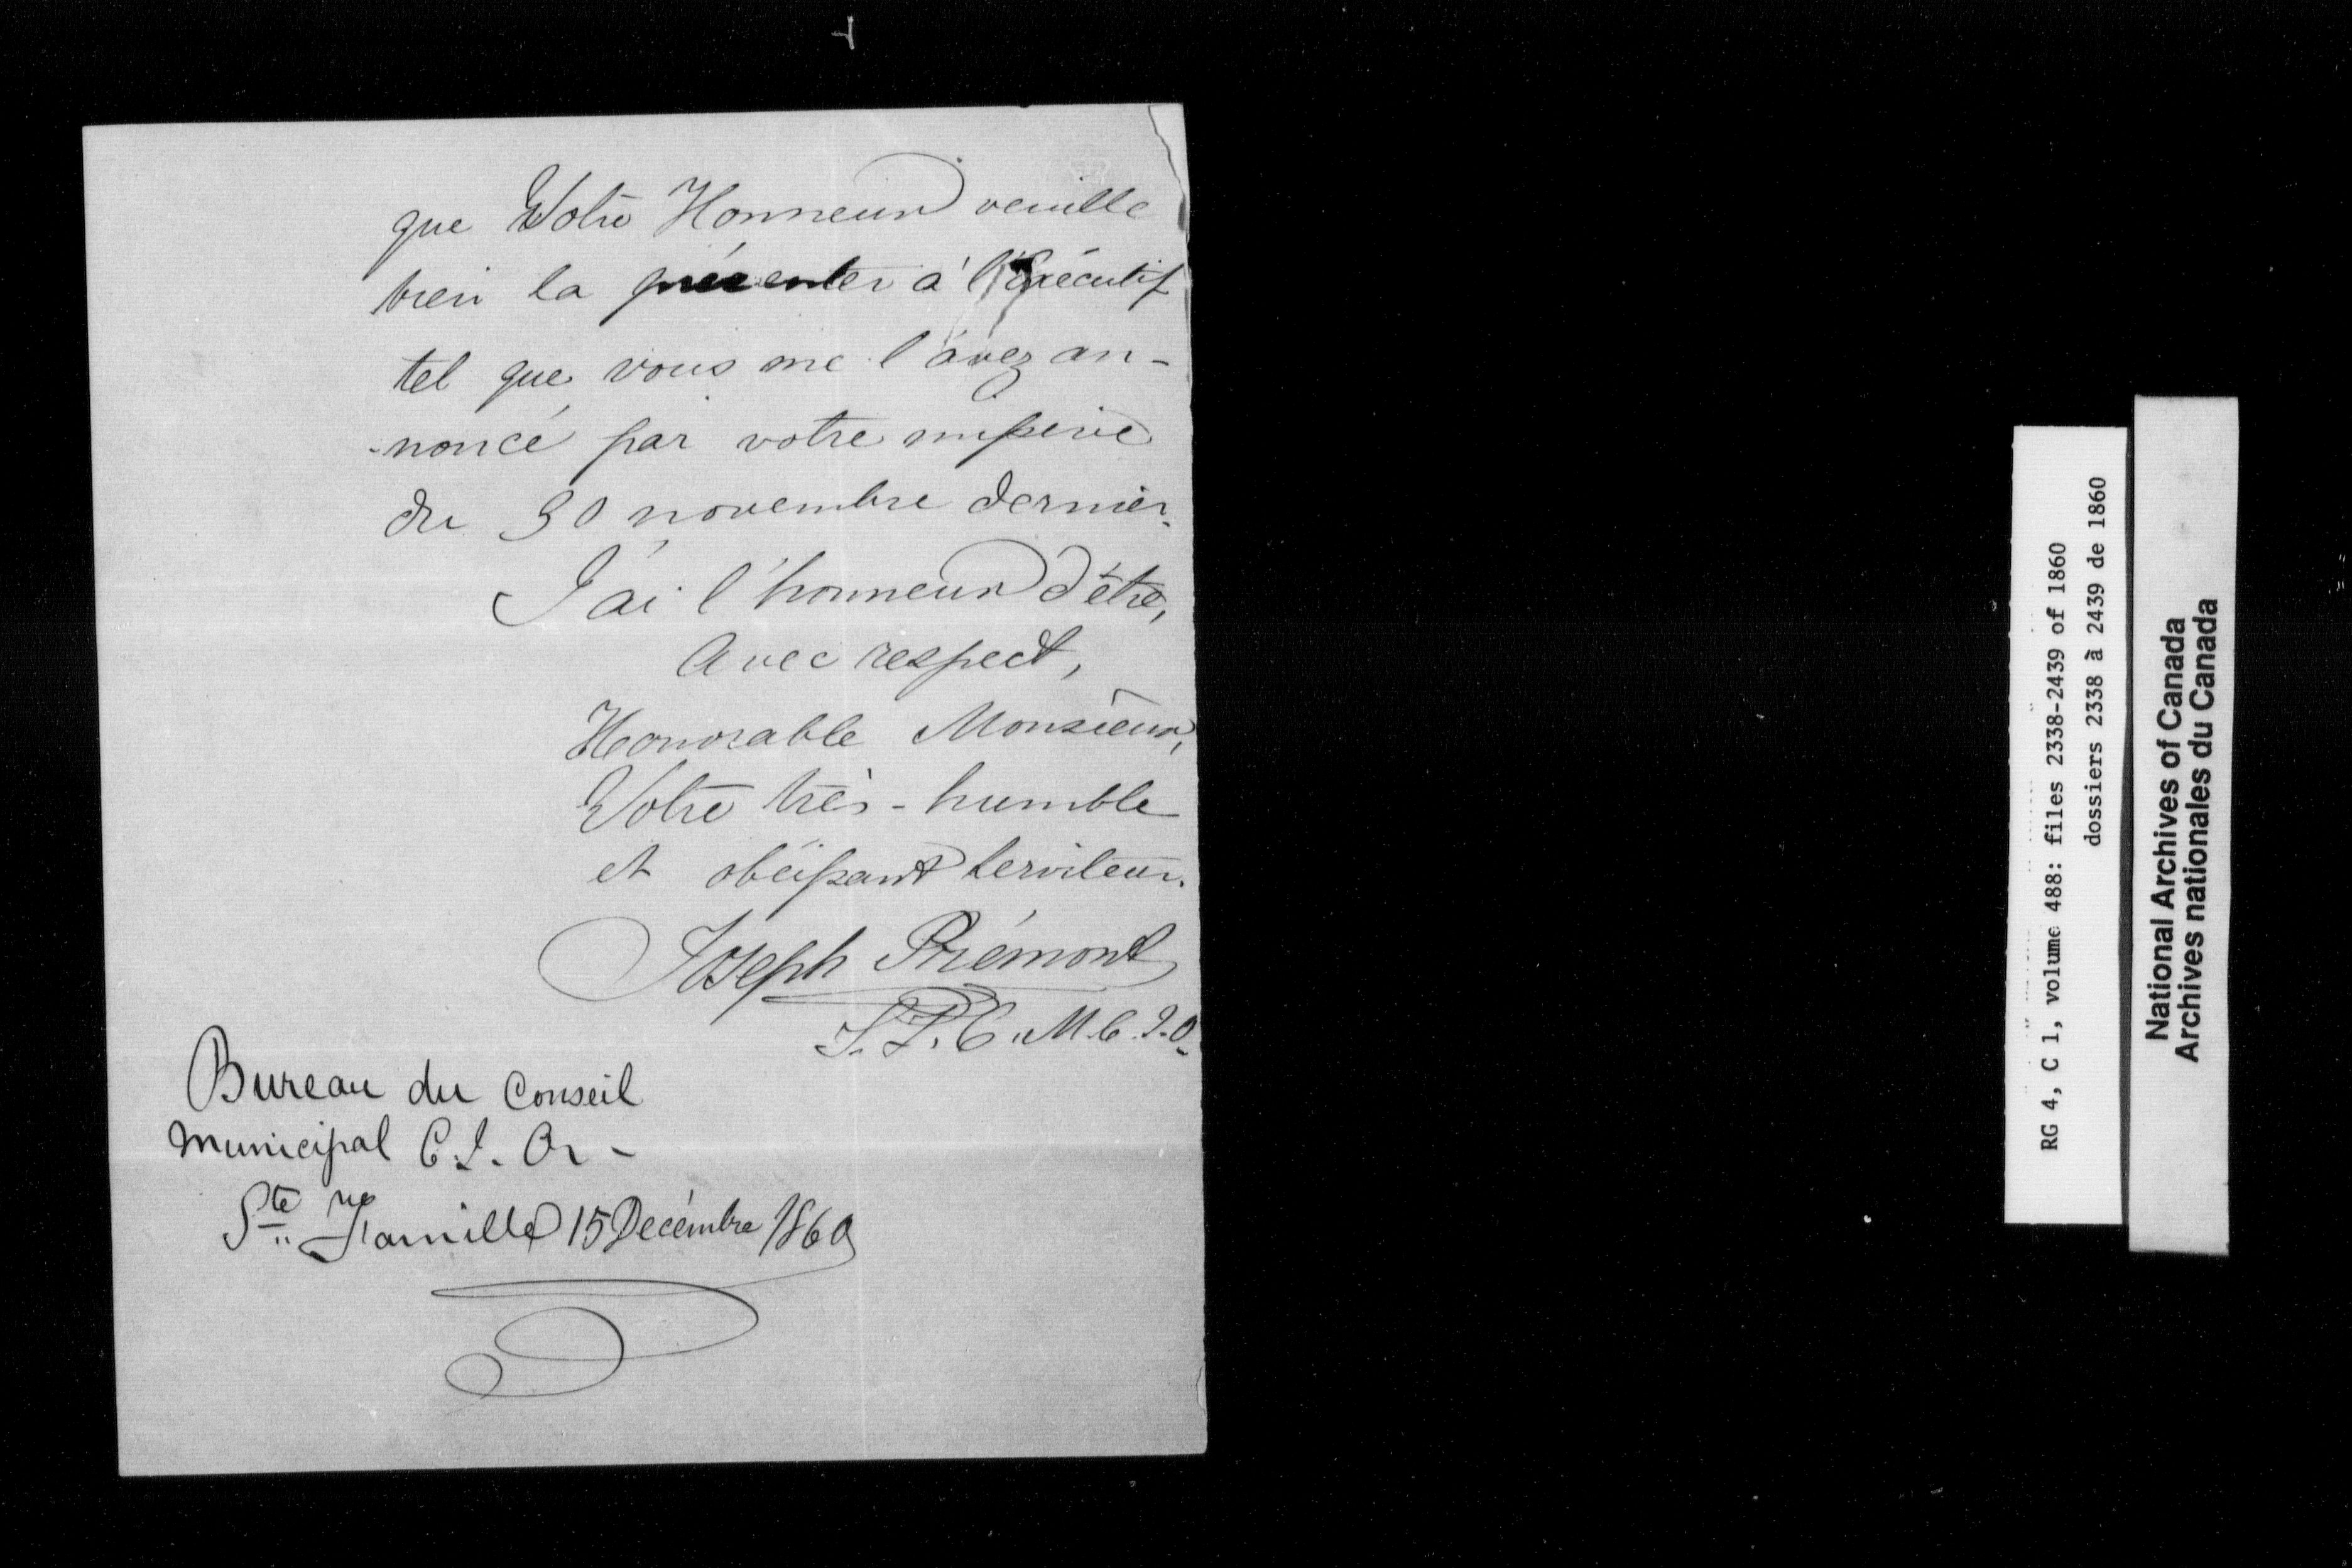 que Votre Honneur veuille
bien la présenter à l'Exécutif
tel que vous me l'avez an-
-noncé par votre missive
du 30 novembre dernier.
J'ai l'honneur d'être,
Avec respect,
Honorable Monsieur,
Votre très-humble
et obéissant serviteur.
Joseph Prémont
S.T.C.M.C.I.O.
Bureau du Conseil
Municipal C.I. Or-
Ste Famille 15 Decémbre 1860
RG 4, C 1, volume 488: files 2338-2439 of 1860
dossiers 2338 à 2439 de 1860
National Archives of Canada
Archives nationales du Canada